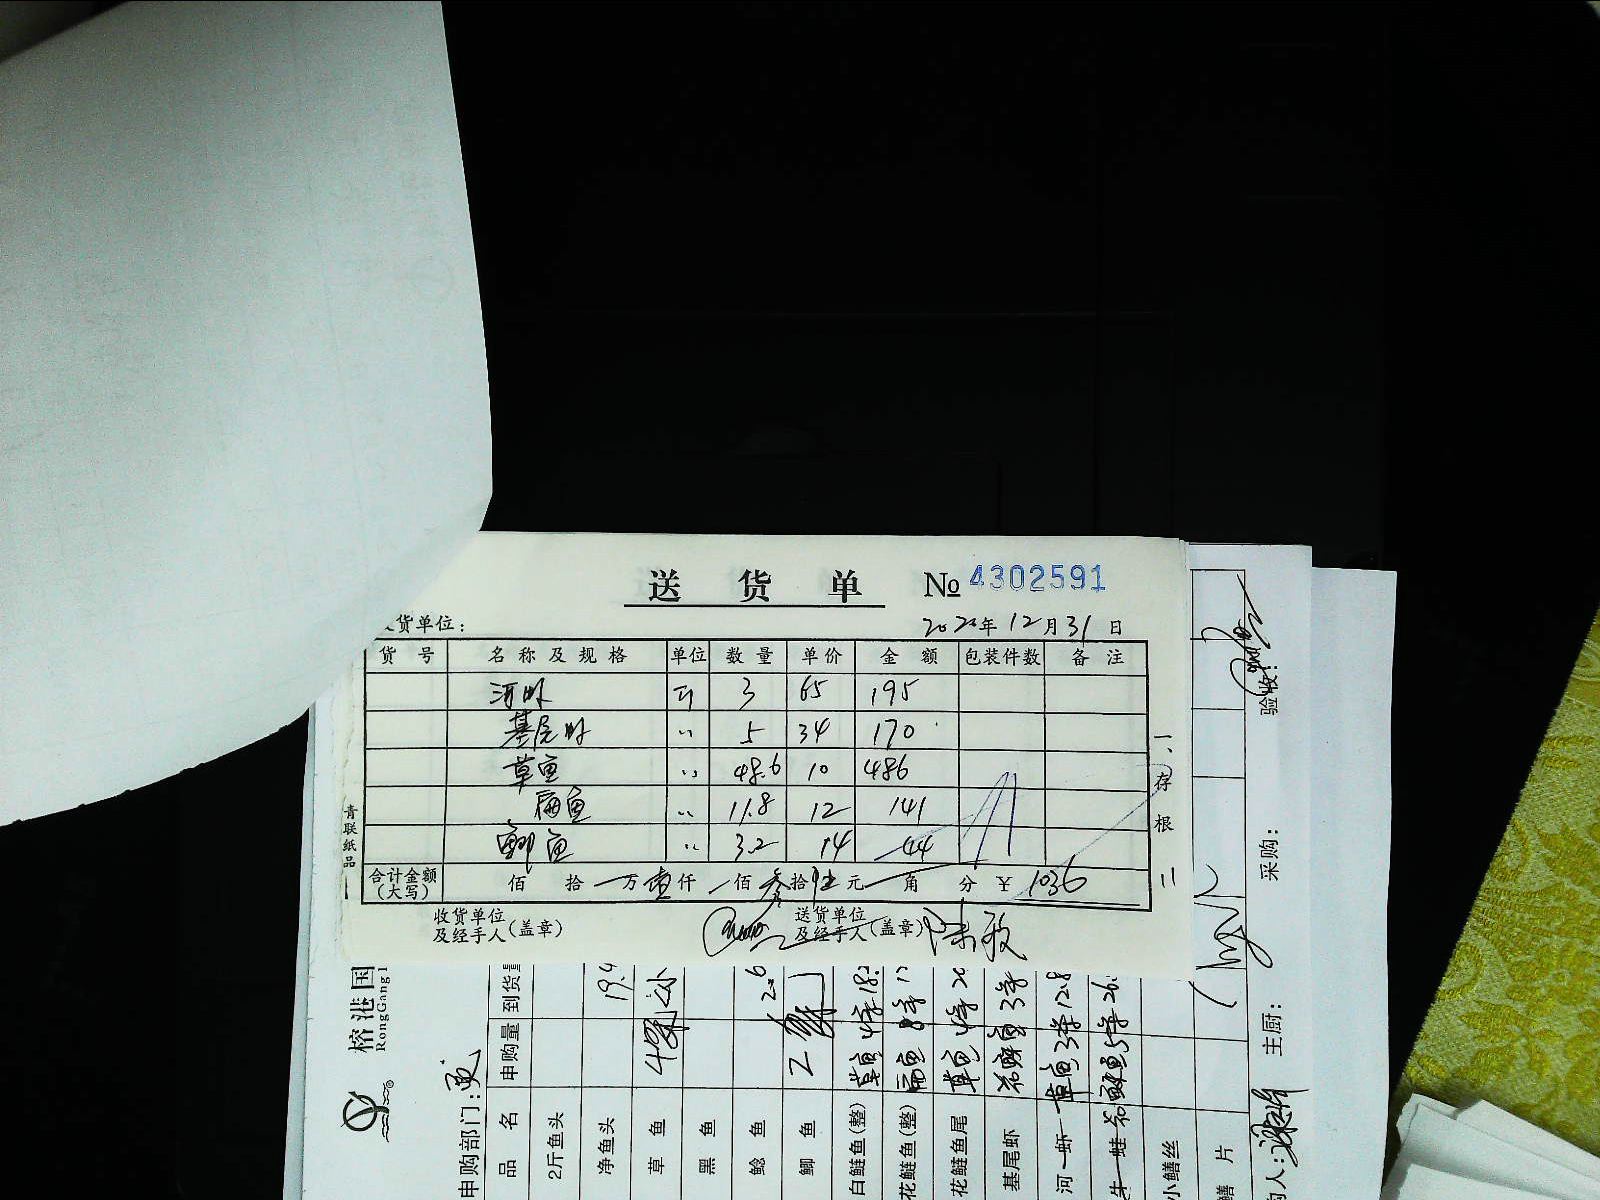 送货单 № 4302591
货单位：
2020年12月31日
货号 名称及规格 单位 数量 单价 金额 包装件数 备注
河虾 斤 3 65 195
基尾虾 〃 5 34 170
草鱼 〃 48.6 10 486
扁鱼 〃 11.8 12 141
鲫鱼 〃 3.2 14 44
合计金额（大写） 佰 拾 一万壹仟 一佰叁拾 元 角 分 ¥ 1036
收货单位及经手人（盖章） 送货单位及经手人（盖章）
一、存根
青联纸品
榕港国
RongGang
申购部门：
品名 申购量 到货量
2斤鱼头
净鱼头 19.4
草鱼
黑鱼
鲶鱼 2.6
鲫鱼 2
白鲢鱼(整) 草鱼
花鲢鱼(整) 扁鱼
花鲢鱼尾 草鱼
基尾虾
河虾 草鱼
牛蛙
小鳝丝
鳝片
验收：
采购：
主厨：
人：